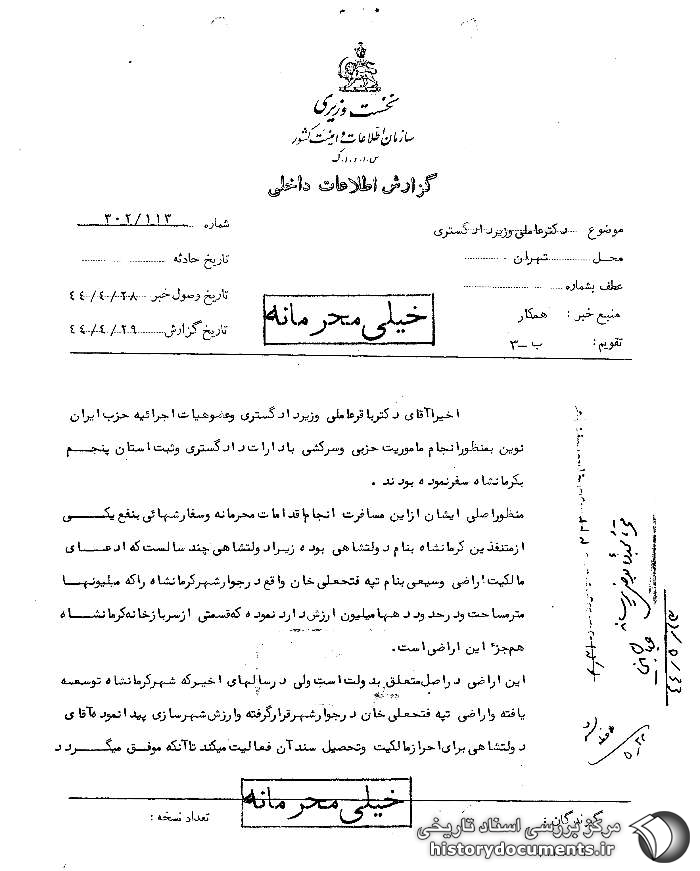 نخست وزیری
سازمان اطلاعات و امنیت کشور
س.ا.و.ا.ک
گزارش اطلاعات داخلی
موضوع دکترعاملی وزیردادگستری
شماره ۳۰۲/۱۱۳
محل تهران
تاریخ حادثه
عطف بشماره
تاریخ وصول خبر ۴۴/۴/۲۸
منبع خبر : همکار
تاریخ گزارش ۴۴/۴/۲۹
تقویم : ب -۳
خیلی محرمانه
اخیراآقای دکترباقرعاملی وزیردادگستری وعضوهیات اجرائیه حزب ایران
نوین بمنظورانجام ماموریت حزبی وسرکشی بادارات دادگستری وثبت استان پنجم
بکرمانشاه سفرنموده بودند .
منظوراصلی ایشان ازاین مسافرت انجام اقدامات محرمانه وسفارشهائی بنفع یکی
ازمتنفذین کرمانشاه بنام دولتشاهی بوده زیرادولتشاهی چند سالست که ادعای
مالکیت اراضی وسیعی بنام تپه فتحعلی خان واقع درجوارشهرکرمانشاه راکه میلیونها
مترمساحت ودرحدود دهها میلیون ارزش دارد نموده که قسمتی ازسربازخانه کرمانشاه
هم جزء این اراضی است.
این اراضی دراصل متعلق بدولت است ولی درسالهای اخیرکه شهرکرمانشاه توسعه
یافته واراضی تپه فتحعلی خان درجوارشهرقرارگرفته وارزش شهرسازی پیدا نموده آقای
دولتشاهی برای احرازمالکیت وتحصیل سندآن فعالیت میکند تاآنکه موفق میگردد
۴۴/۵/۱۳
۵/۲۳
خیلی محرمانه
گیرندگان :
تعداد نسخه :
مرکز بررسی اسناد تاریخی
historydocuments.ir